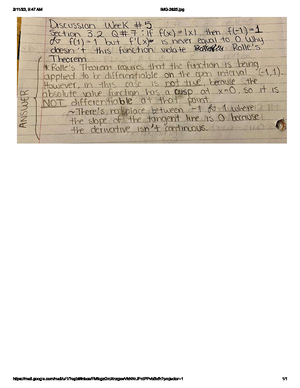 2/11/23, 9:47 AM
IMG-2625.jpg
Discussion Week #5
Section 3.2 Q#7: If f(x)=|x|, then f(-1)=1
& f(1)=1 but f'(x) is never equal to 0. Why
doesn't this function violate Rolle's
Theorem
* Rolle's Theorem requires that the function is being
applied to be differentiable on the open interval (-1,1).
However, in this case is not true because the
absolute value function has a cusp at x=0, so it is
NOT differentiable at that point.
~There's no place between -1 & 1 where
the slope of the tangent line is 0 because
the derivative isn't continuous.
ANSWER
1/1